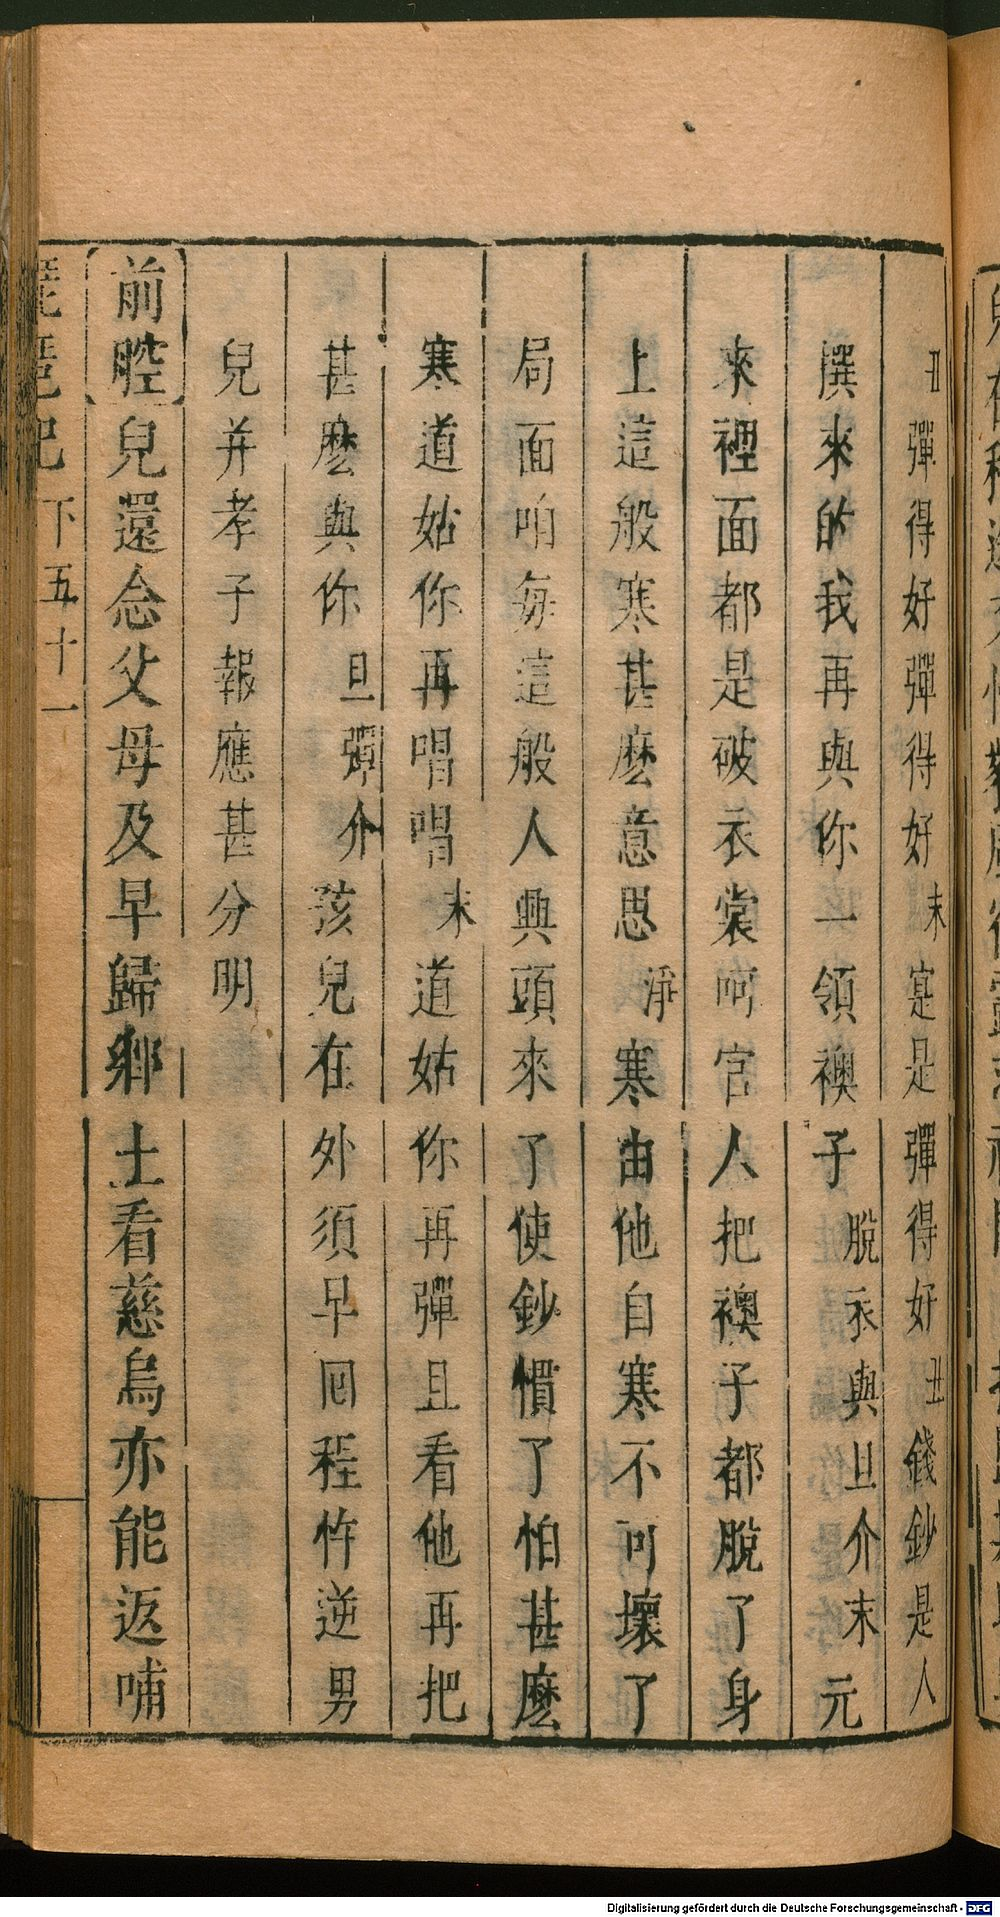 丑彈得好彈得好末寔是彈得好丑錢鈔是人
撰來的我再與你一領襖子脫衣與旦介末元
來裡面都是破衣裳呵官人把襖子都脫了身
上這般寒甚麽意思淨寒由他自寒不可壞了
局面咱每這般人興頭來了使鈔慣了怕甚麽
寒道姑你再唱唱末道姑你再彈且看他再把
甚麽與你旦彈介孩兒在外須早囘程忤逆男
兒并孝子報應甚分明
前腔兒還念父母及早歸鄉土看慈烏亦能返哺
琵琶記 下五十一
Digitalisierung gefördert durch die Deutsche Forschungsgemeinschaft - DFG